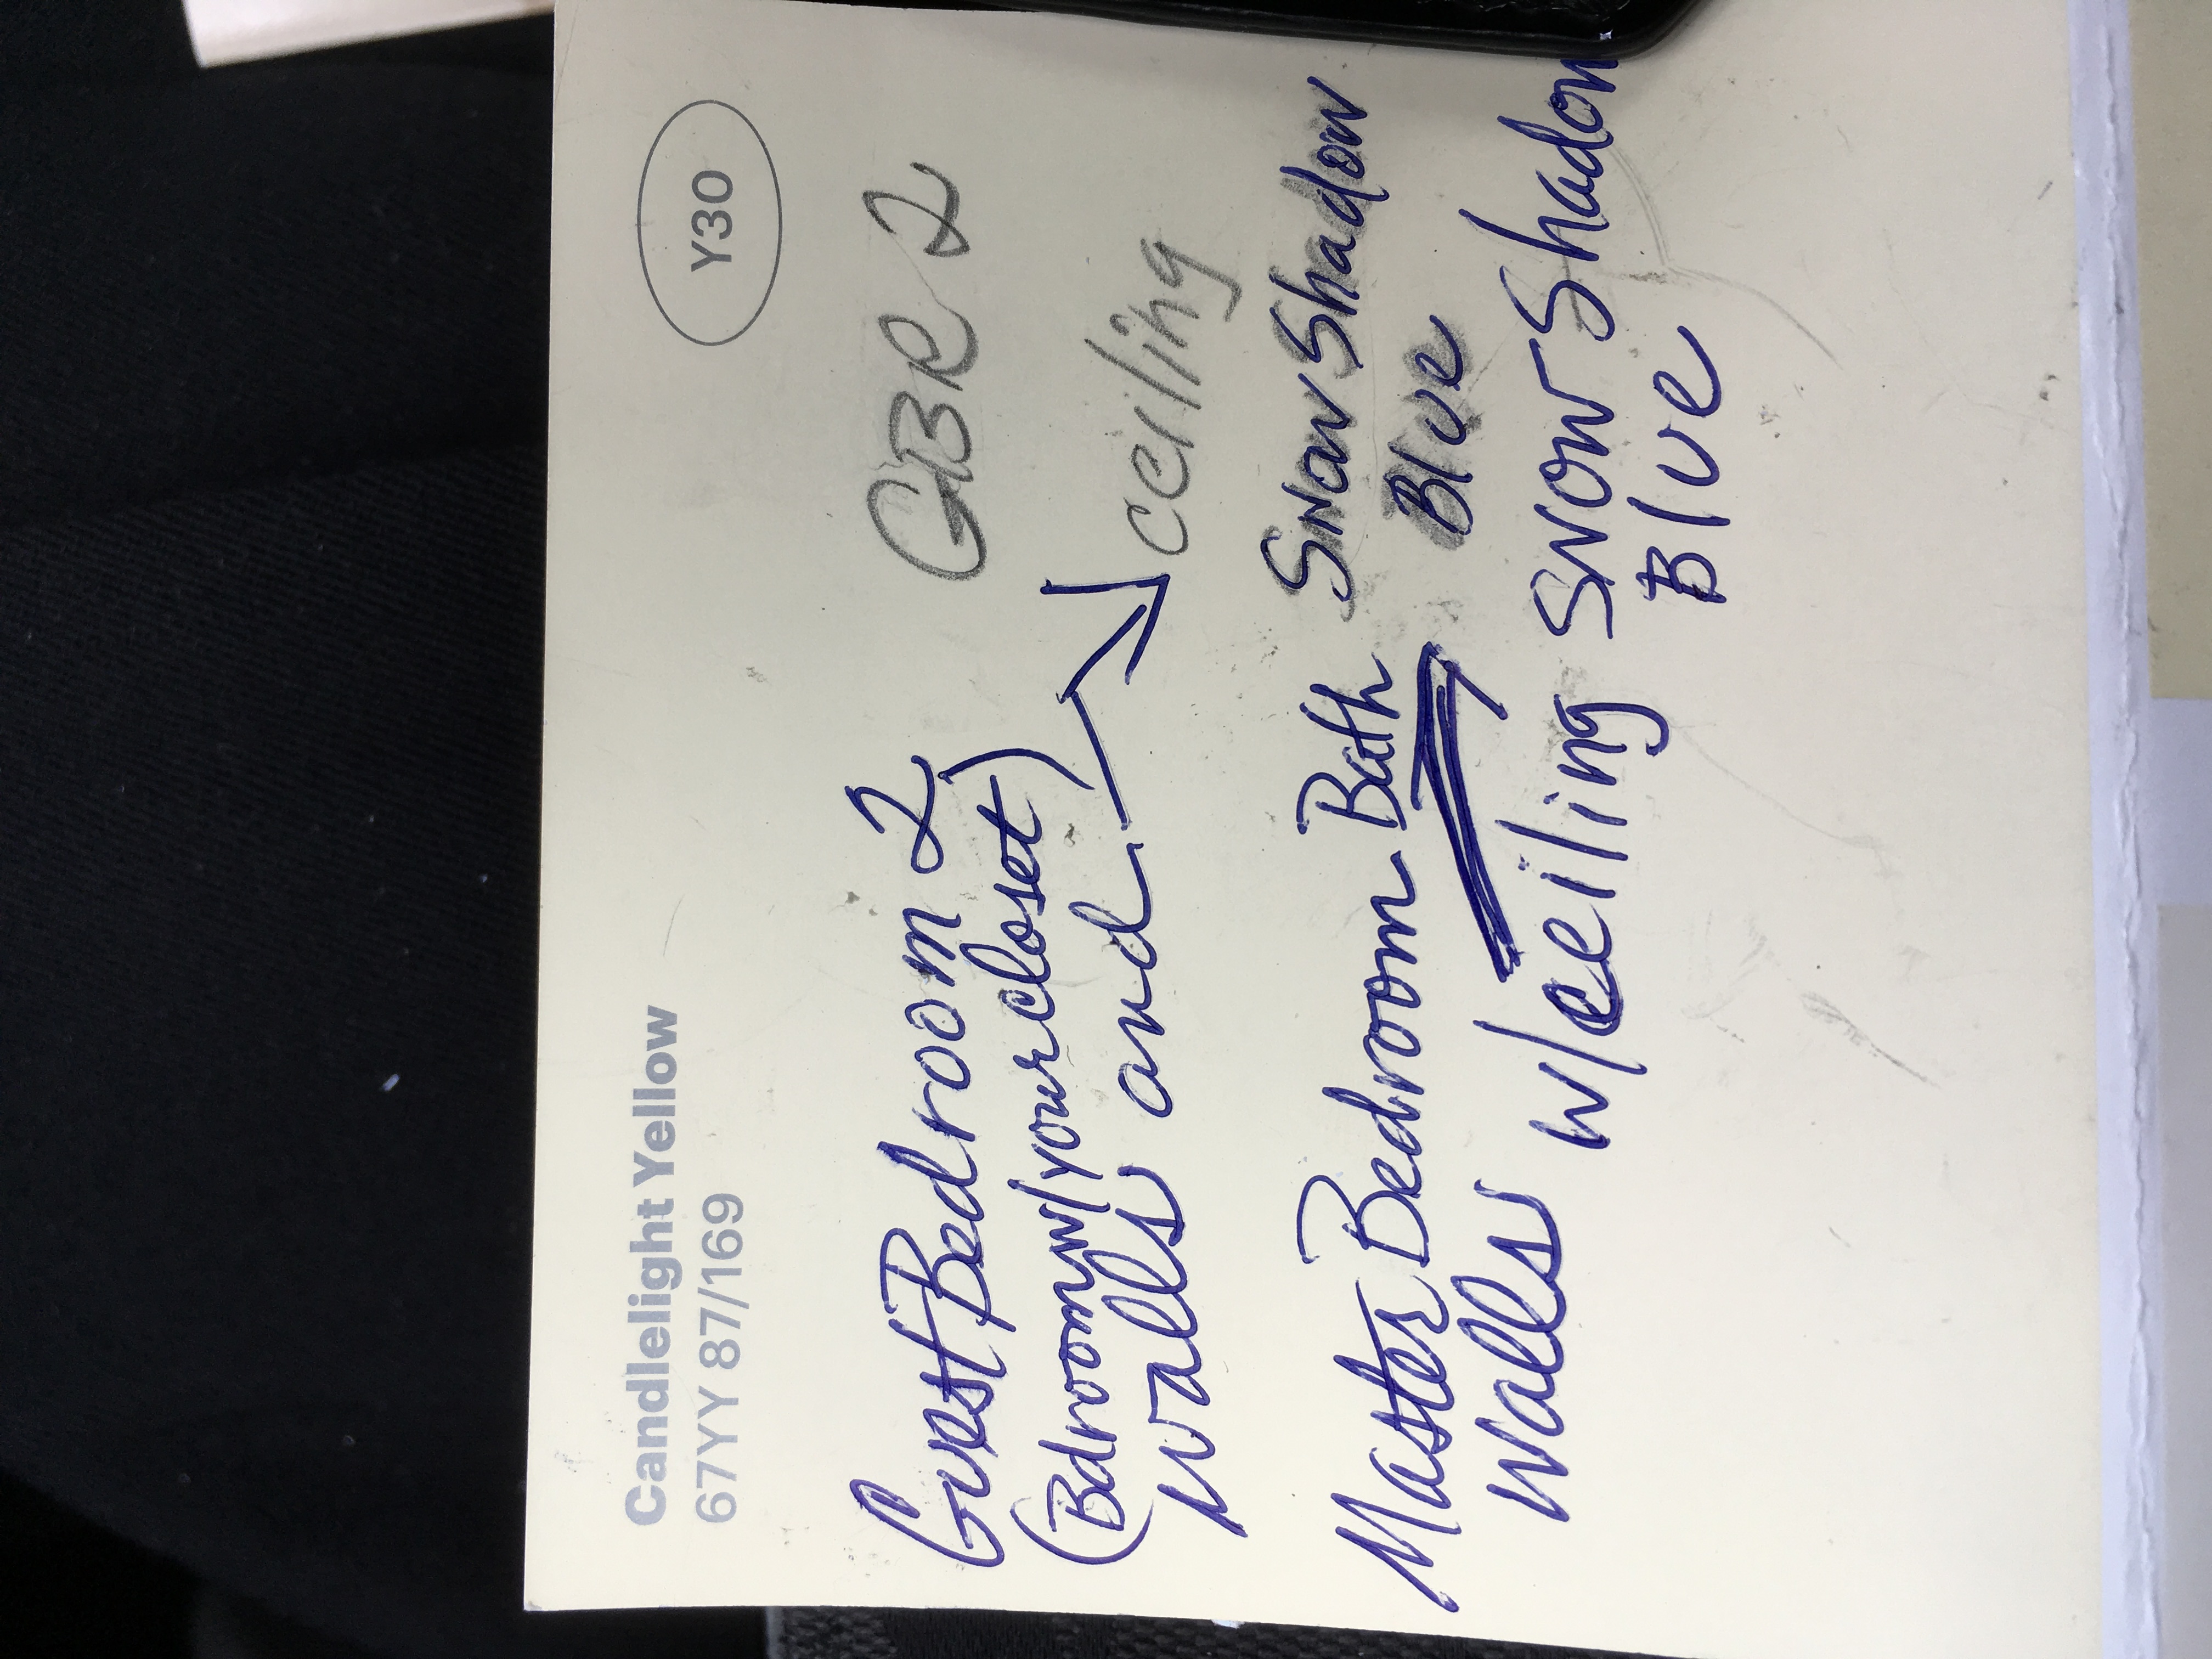 Candlelight Yellow
67YY 87/169
Y30
Guest Bedroom 2
GBR 2
(Bdroom w/your closet)
walls and
ceiling
Master Bedroom Bath
Snow Shadow
Blue
walls w/ceiling Snow Shadow
Blue